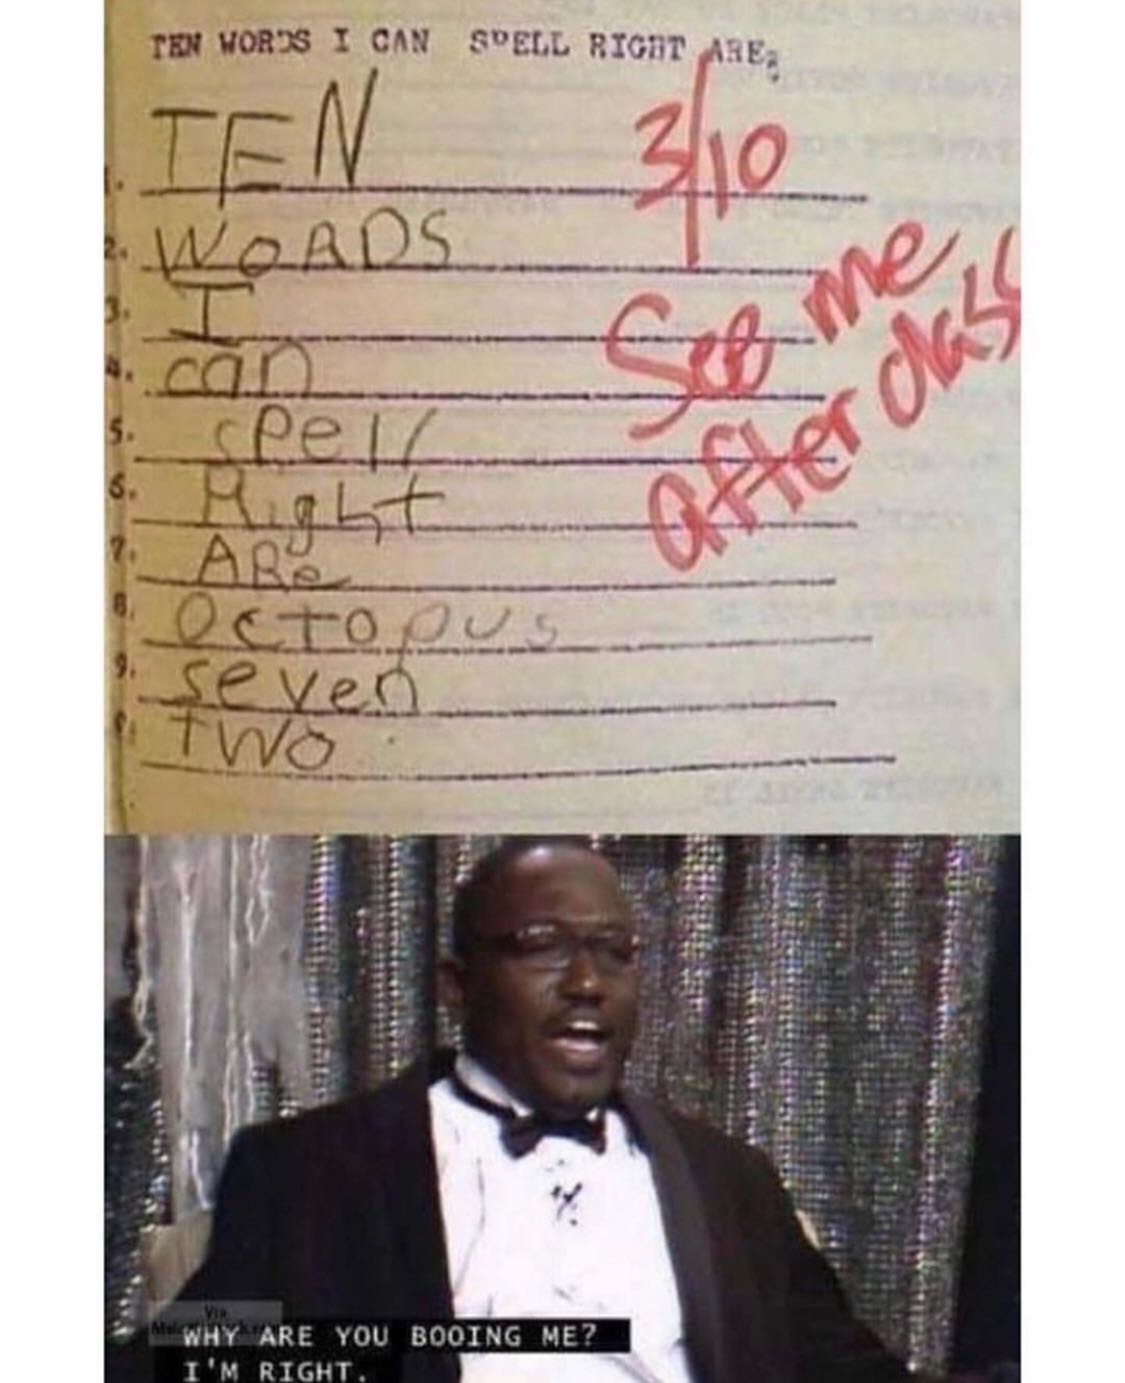 TEN WORDS I CAN SPELL RIGHT ARE:
3/10
1. TEN
2. WORDS
3. I
4. can
5. spell
6. Right
7. ARe
8. OCTOpus
9. seven
TWO
See me
after class
Via
WHY ARE YOU BOOING ME?
I'M RIGHT.